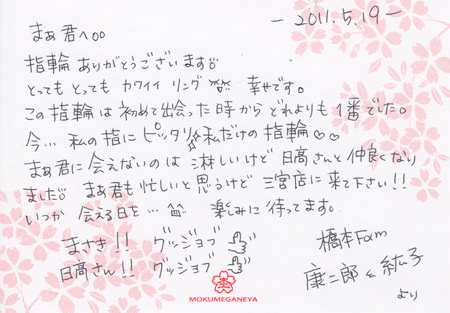 －2011.5.19－
まぁ君へ。。
指輪ありがとうございます!!
とっても とっても カワイイ リング 幸せです。
この指輪は初めて出会った時からどれよりも1番でした。
今… 私の指にピッタリ☆私だけの指輪♡♡
まぁ君に会えないのは淋しいけど 日高さんと仲良くなり
ました!! まぁ君も忙しいと思うけど三宮店に来て下さい!!
いつか 会える日を… 楽しみに待ってます。
まさき!! グッジョブ
日高さん!! グッジョブ
橋本Fam
康二郎 & 紘子
より
MOKUMEGANEYA